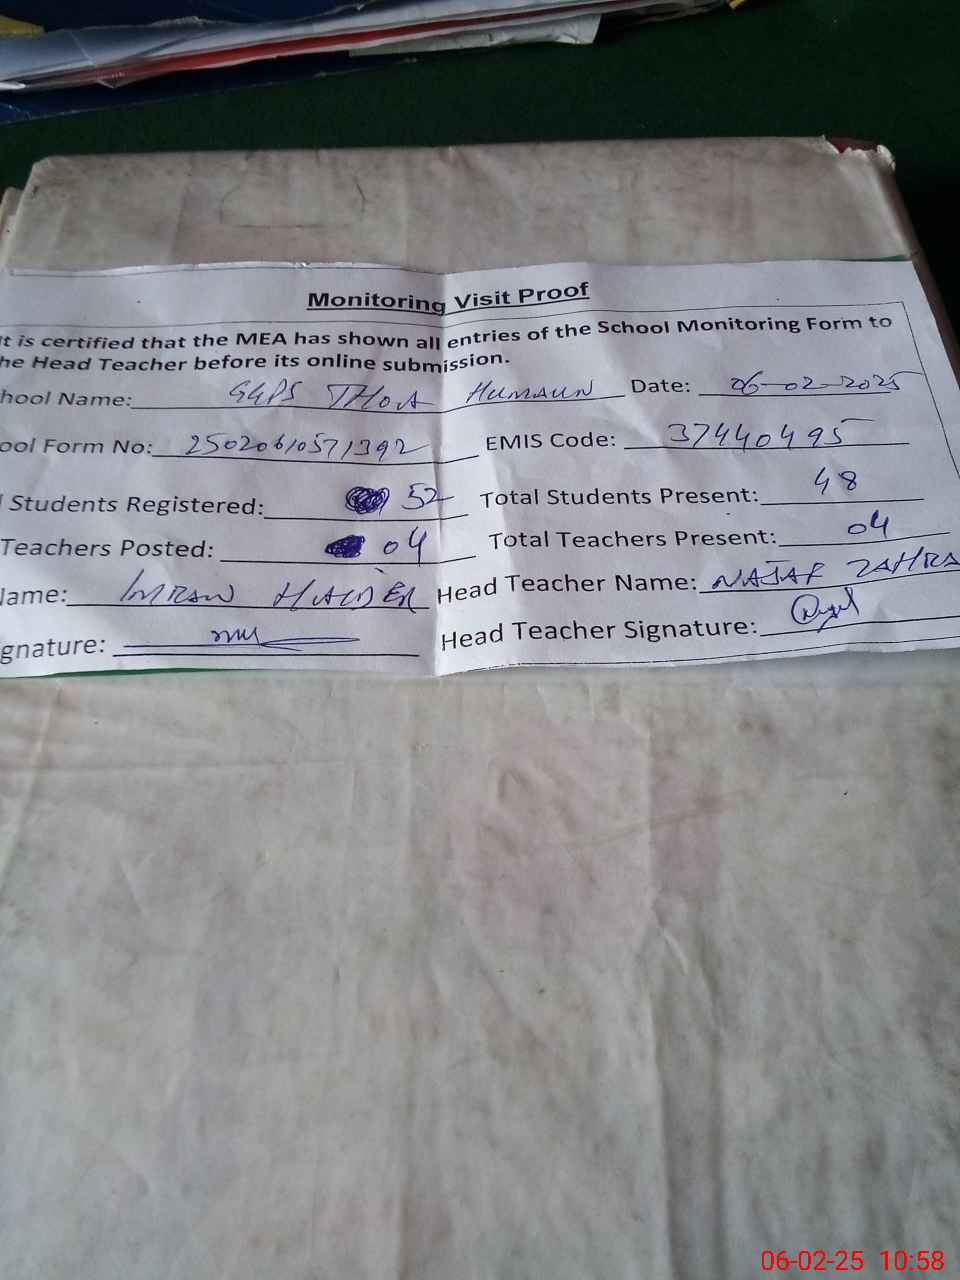 Monitoring Visit Proof
t is certified that the MEA has shown all entries of the School Monitoring Form to
he Head Teacher before its online submission.
hool Name: GGPS THOA HUMAUN Date: 06-02-2025
ool Form No: 25020610571392 EMIS Code: 37440495
l Students Registered: 52 Total Students Present: 48
Teachers Posted: 04 Total Teachers Present: 04
Name: IMRAN HAIDER Head Teacher Name: NAJAF ZAHRA
gnature: Head Teacher Signature:
06-02-25 10:58